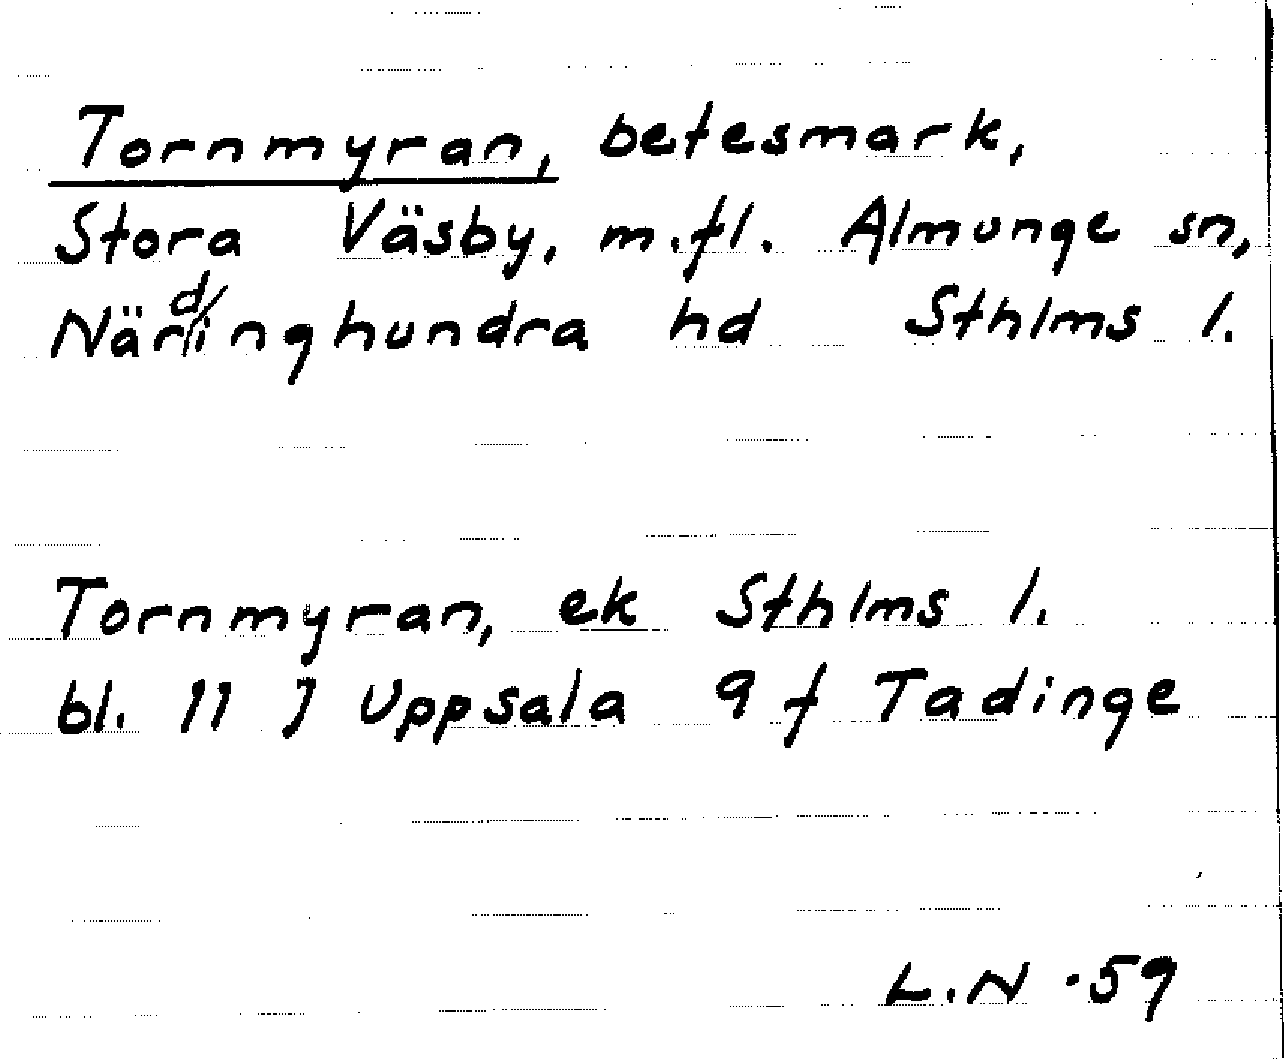 Tornmyran, betesmark,
Stora Väsby, m.fl. Almunge sn,
Närdinghundra hd Sthlms l.
Tornmyran, ek Sthlms l.
bl. 11 J Uppsala 9 f Tadinge
L.N -59